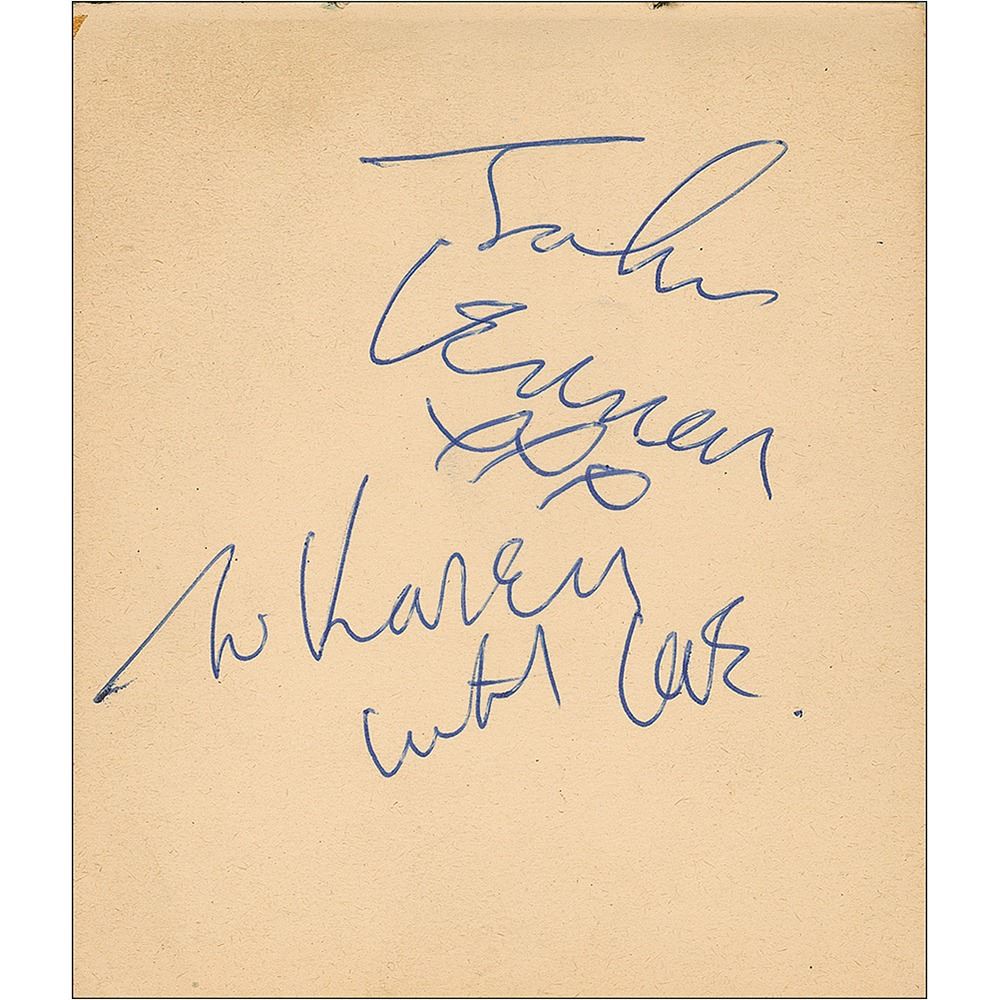 John
Lennon
xxx
to Karen
with love.